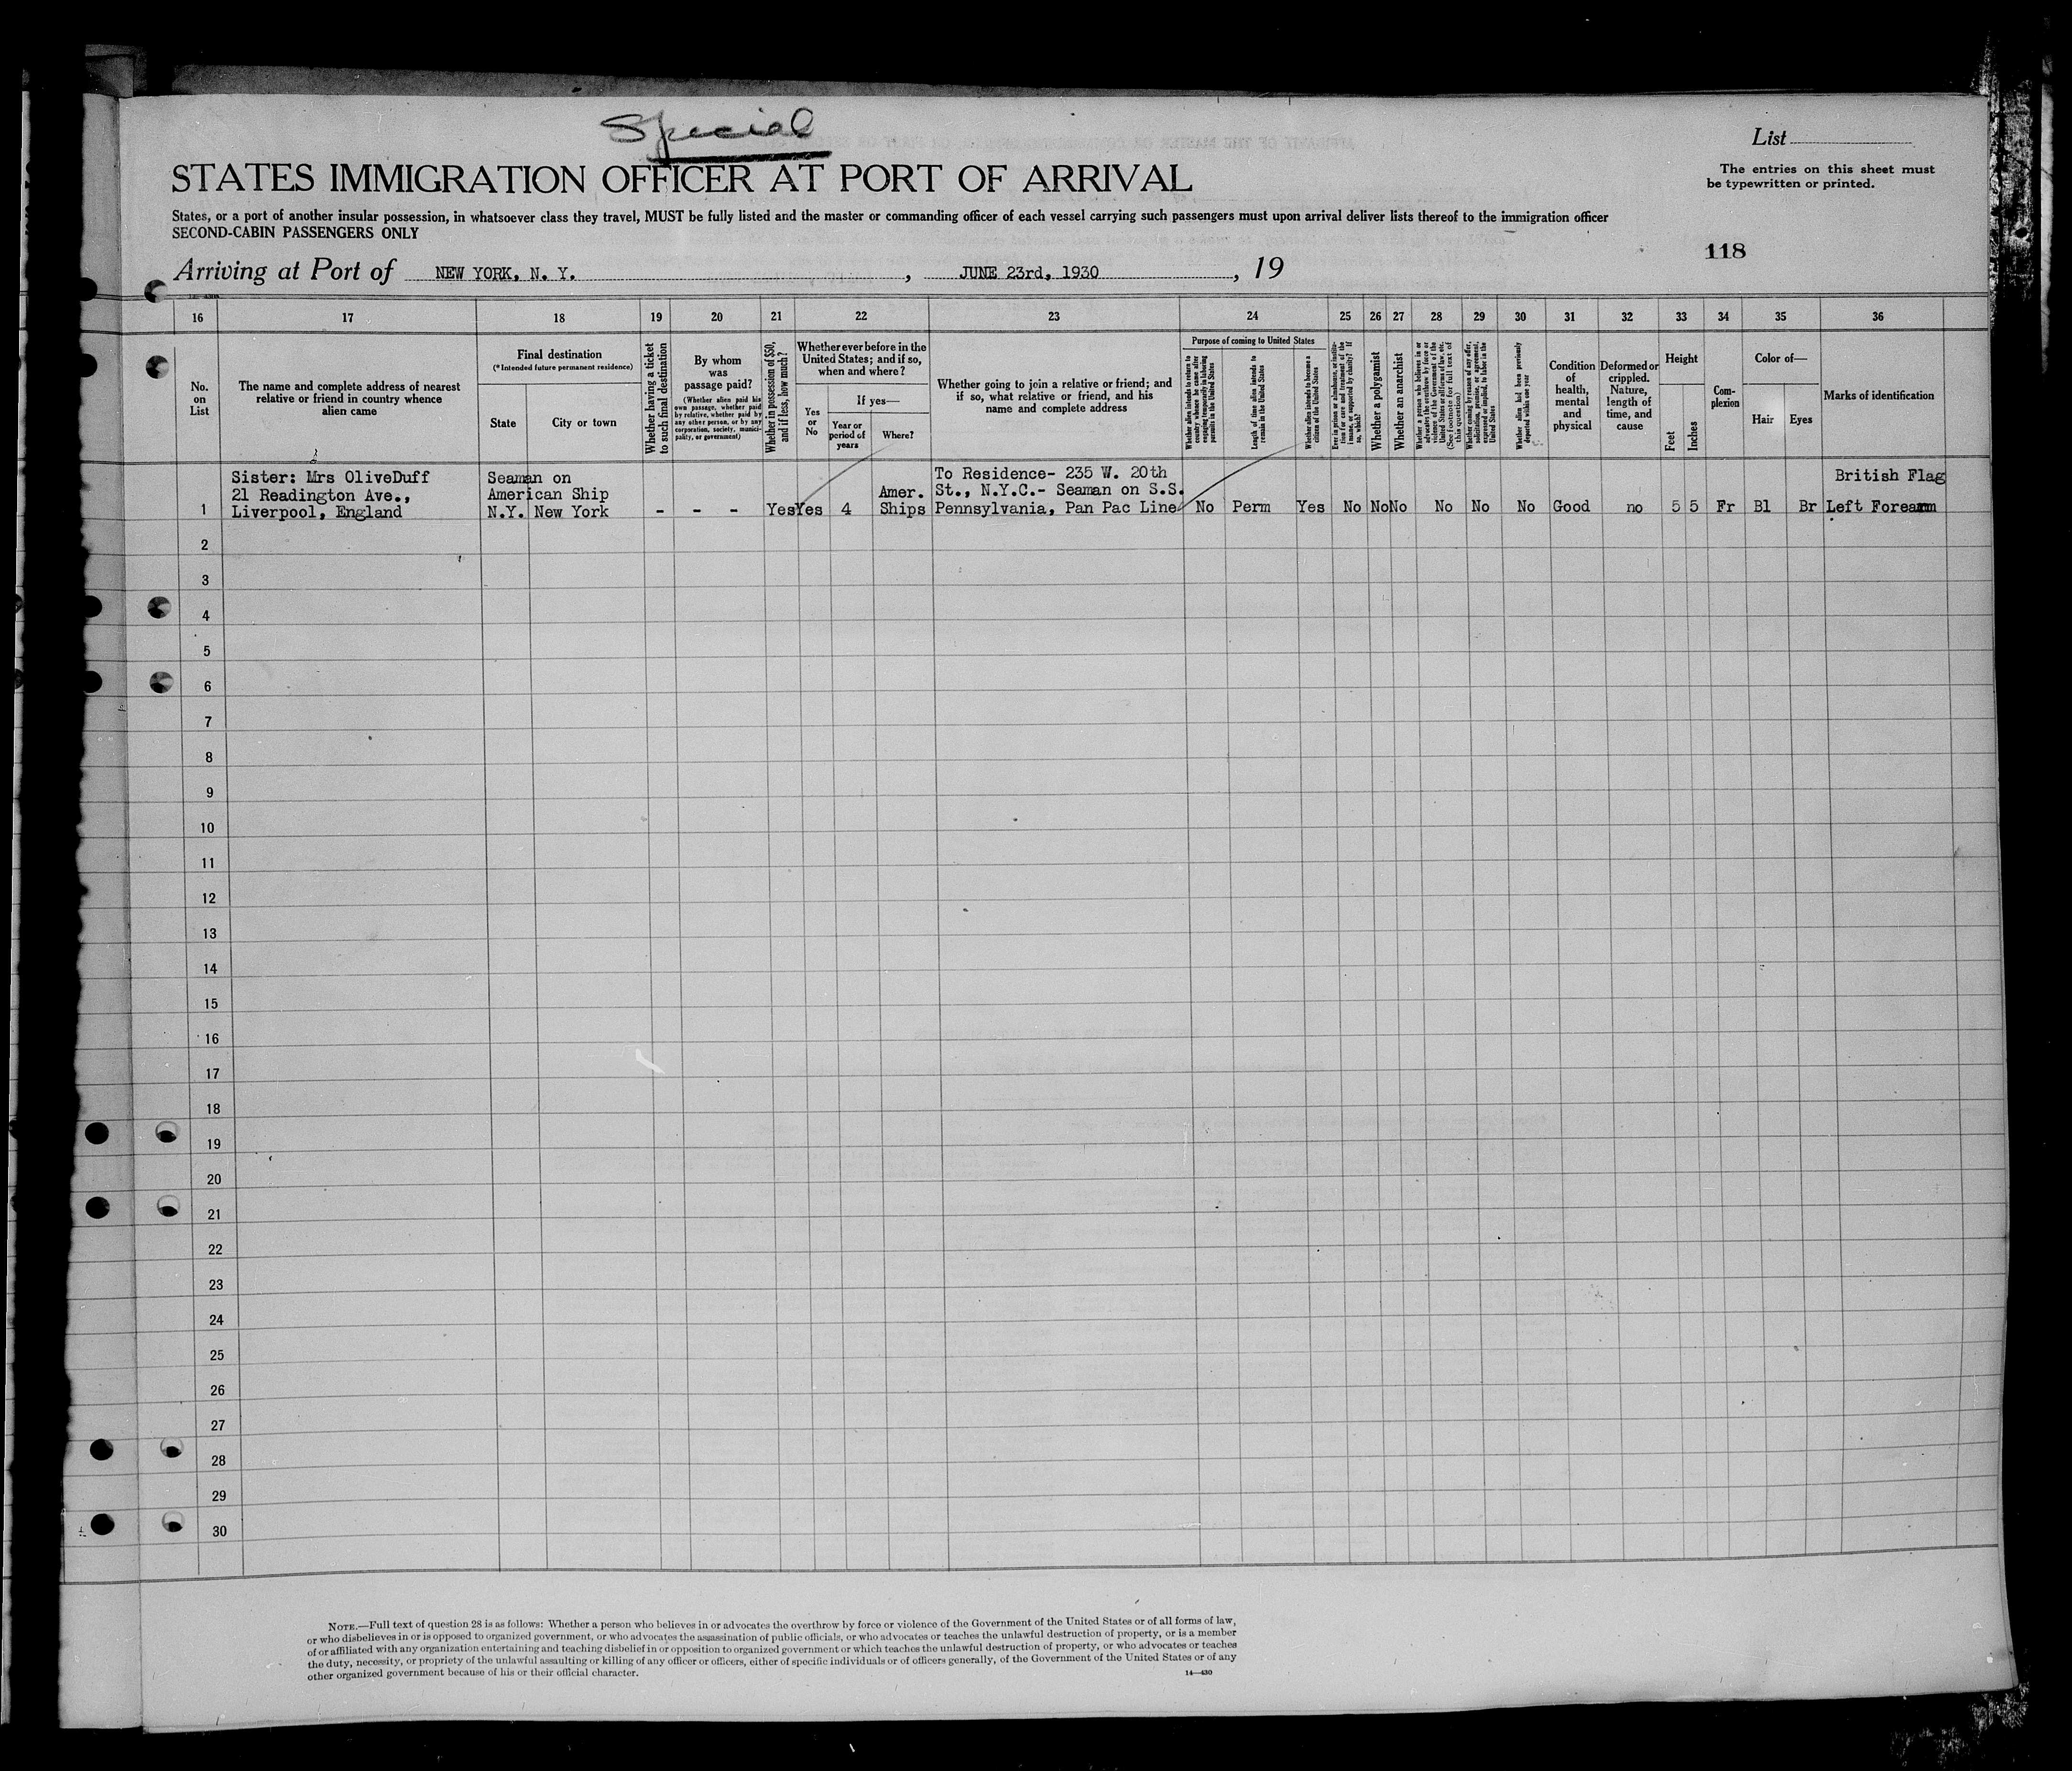 Special
List
STATES IMMIGRATION OFFICER AT PORT OF ARRIVAL
The entries on this sheet must
be typewritten or printed.
States, or a port of another insular possession, in whatsoever class they travel, MUST be fully listed and the master or commanding officer of each vessel carrying such passengers must upon arrival deliver lists thereof to the immigration officer
SECOND-CABIN PASSENGERS ONLY
118
Arriving at Port of NEW YORK, N. Y. , JUNE 23rd, 1930 , 19
16 17 18 19 20 21 22 23 24 25 26 27 28 29 30 31 32 33 34 35 36
No.
on
List
The name and complete address of nearest
relative or friend in country whence
alien came
Final destination
(*Intended future permanent residence)
State
City or town
Whether having a ticket
to such final destination
By whom
was
passage paid?
(Whether alien paid his
own passage, whether paid
by relative, whether paid by
any other person, or by any
corporation, society, munici-
pality, or government)
Whether in possession of $50,
and if less, how much?
Whether ever before in the
United States; and if so,
when and where?
Yes
or
No
If yes—
Year or
period of
years
Where?
Whether going to join a relative or friend; and
if so, what relative or friend, and his
name and complete address
Purpose of coming to United States
Whether alien intends to return to
country whence he came after
engaging temporarily in laboring
pursuits in the United States
Length of time alien intends to
remain in the United States
Whether alien intends to become a
citizen of the United States
Whether a polygamist
Whether an anarchist
Whether alien had been previously
deported within one year
Condition
of
health,
mental
and
physical
Deformed or
crippled.
Nature,
length of
time, and
cause
Height
Feet
Inches
Com-
plexion
Color of—
Hair
Eyes
Marks of identification
Sister: Mrs OliveDuff
21 Readington Ave.,
Liverpool, England
Seaman on
American Ship
N.Y. New York
- - -
Yes Yes 4
Amer.
Ships
To Residence- 235 W. 20th
St., N.Y.C.- Seaman on S.S.
Pennsylvania, Pan Pac Line
No Perm Yes No No No No No No Good no 5 5 Fr Bl Br
British Flag
Left Forearm
1
2
3
4
5
6
7
8
9
10
11
12
13
14
15
16
17
18
19
20
21
22
23
24
25
26
27
28
29
30
NOTE.—Full text of question 28 is as follows: Whether a person who believes in or advocates the overthrow by force or violence of the Government of the United States or of all forms of law,
or who disbelieves in or is opposed to organized government, or who advocates the assassination of public officials, or who advocates or teaches the unlawful destruction of property, or is a member
of or affiliated with any organization entertaining and teaching disbelief in or opposition to organized government or which teaches the unlawful destruction of property, or who advocates or teaches
the duty, necessity, or propriety of the unlawful assaulting or killing of any officer or officers, either of specific individuals or of officers generally, of the Government of the United States or of any
other organized government because of his or their official character.
14—430